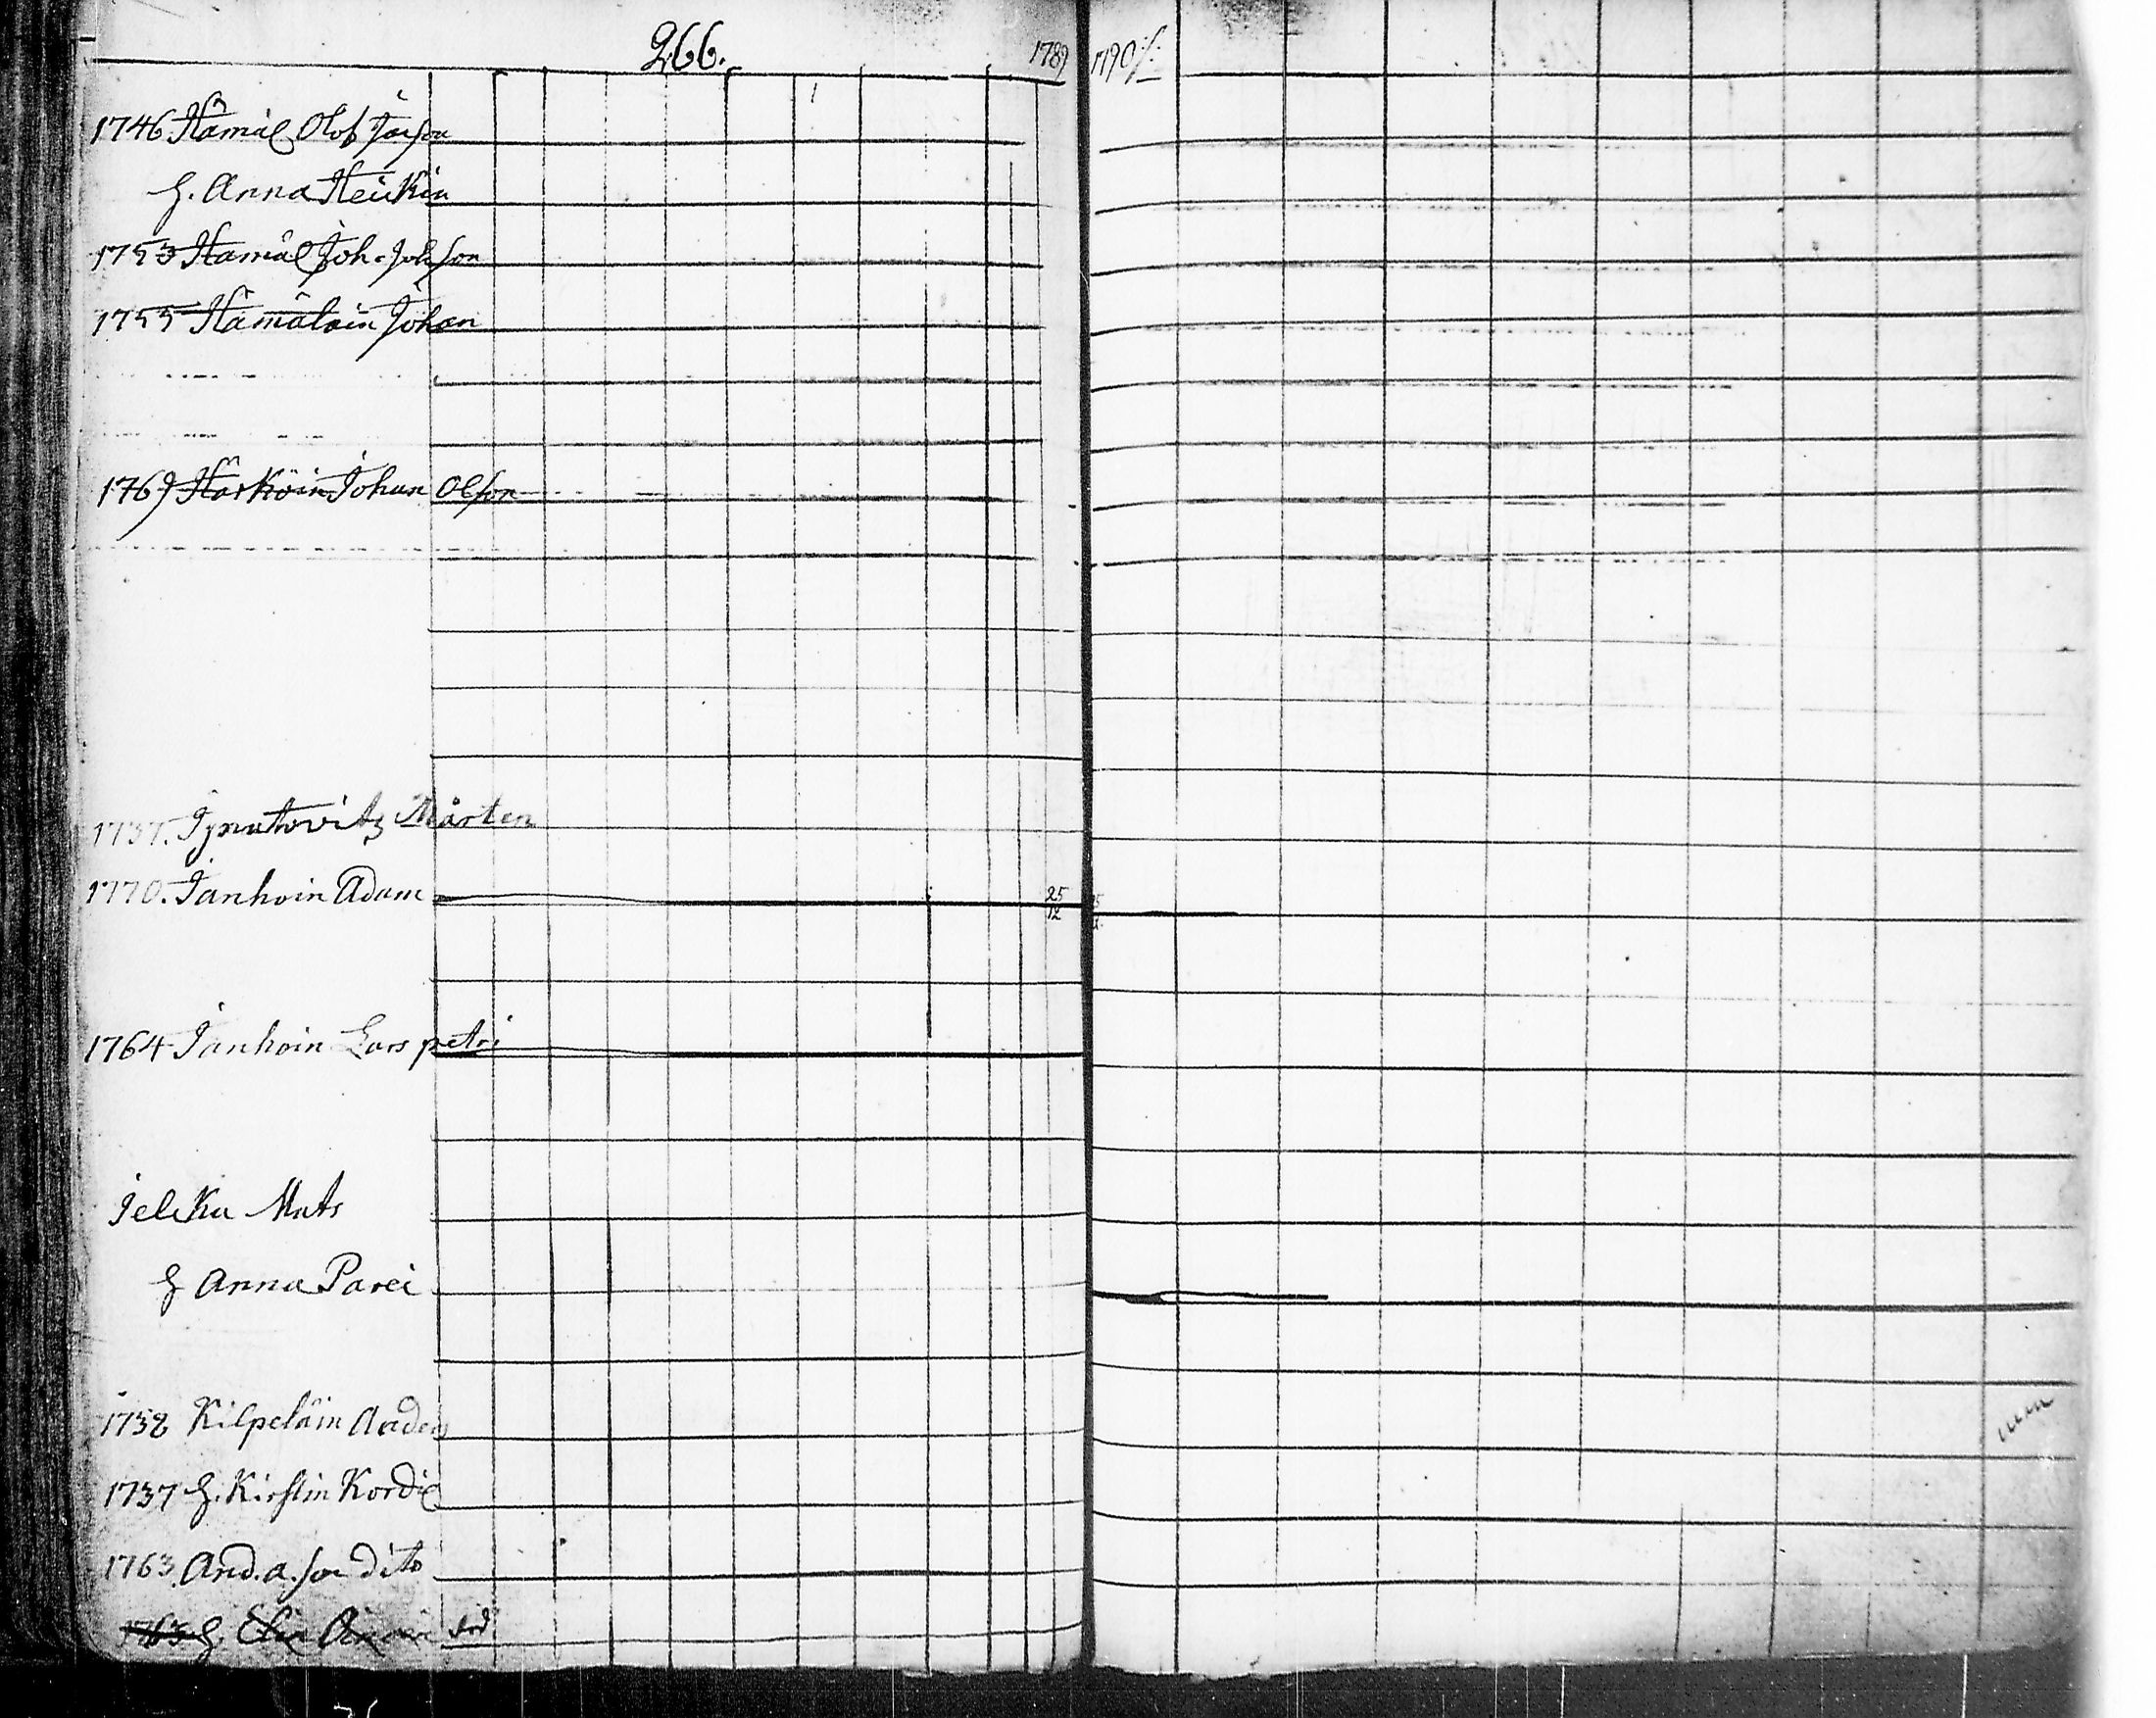 266.
1789 1790
1746 Hämäl Olof Joh son
h. Anna Heikin
1753 Hämäl Joh. Joh son
1755 Hämäläin Johan
1769 Härköin Johan Olson
1737. Ignatovitz Mårten
1770. Janhoin Adam 25 12
1764 Janhoin Lars petri
Jelku Mats
h Anna Parei
1738 Kilpeläin Anders
1737 h. Kirstin Kordie
1763. And. a. son dito
1763 h. Elin död